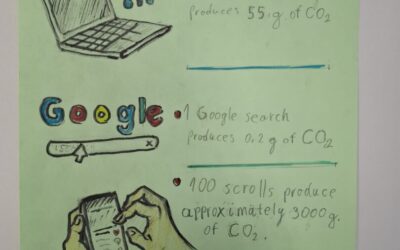 produces 55 g of CO2
Google
1 Google search
produces 0.2 g of CO2
100 scrolls produce
approximately 3000 g.
of CO2.